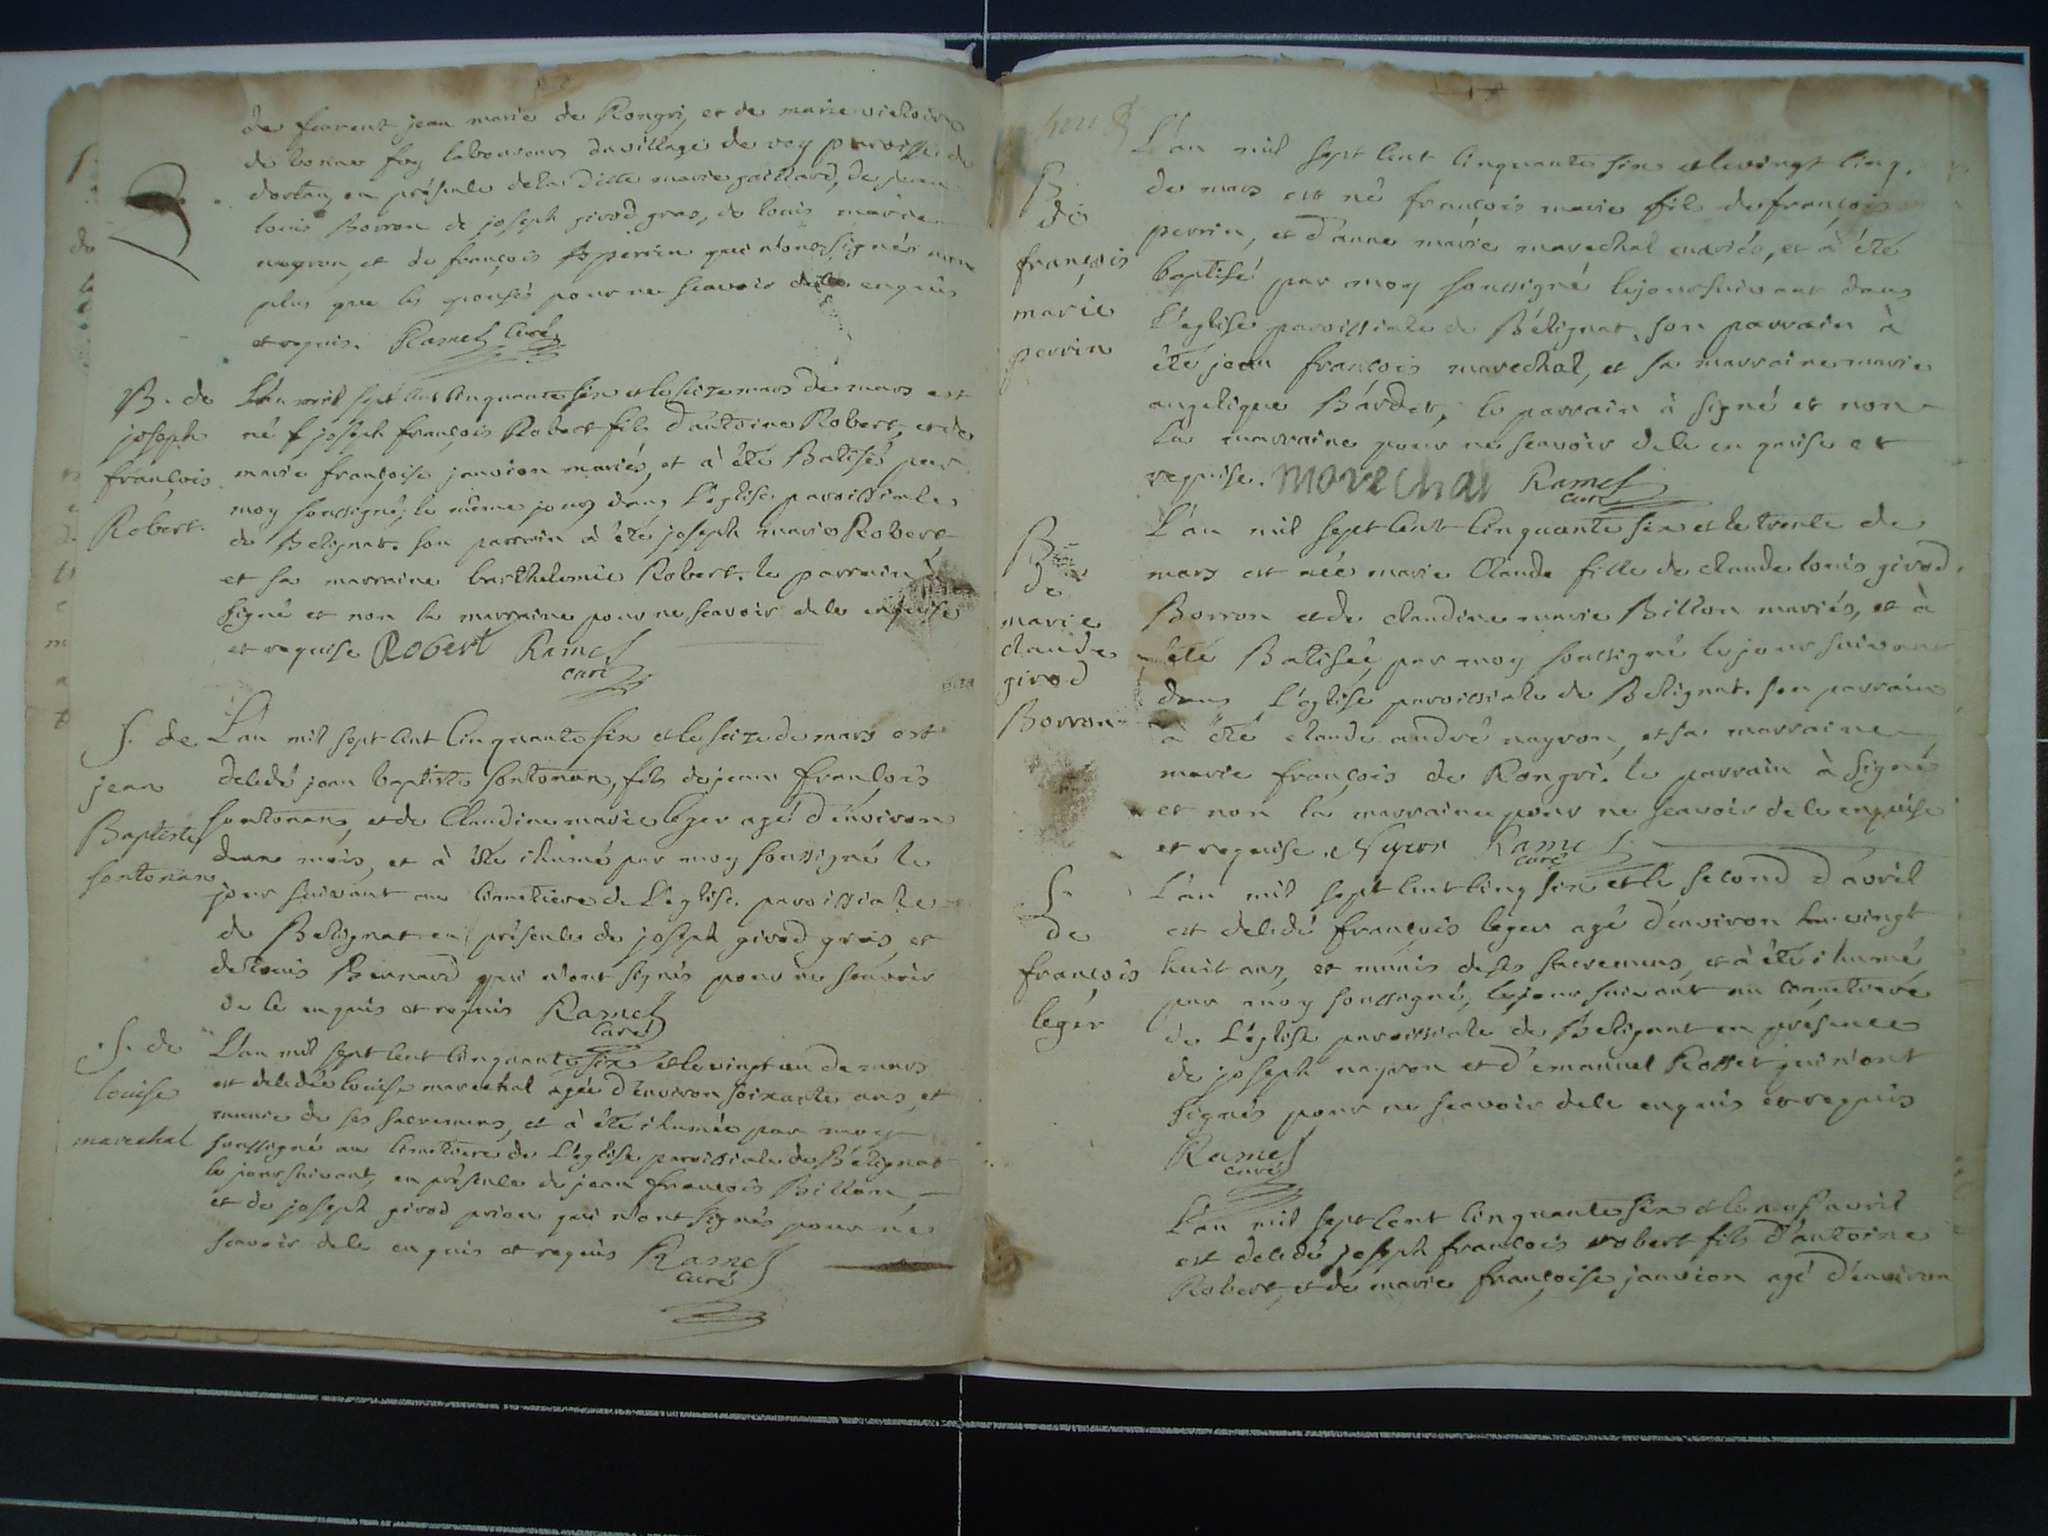 de jean marie de Rongri, et de marie victoire
de bonne foy laboureurs du village de vey parroisse de
dortan, en présence de la ditte marie gaillard, de jean
louis Borron de joseph girod gras, de louis marie
nayron, et de françois perrin qui n'ont signés non
plus que les epousés pour ne scavoir de le enquis
et requis. Ramel Curé
B. de
joseph
françois
Robert.
L'an mil sept cent cinquante six et le seize mars de mars est
né joseph françois Robert fils d'antoine Robert, et de
marie françoise janvion mariés, et à été Batisés par
moy soussigné, le même jour dans L'église paroissiale
de Belignat. son parrain à été joseph marie Robert,
et sa marraine barthelemie Robert. le parrain à
signé et non la marraine pour ne scavoir de le enquise
et requise Robert Ramel
curé
S. de
jean
Baptiste
sontonan
L'an mil sept cent cinquante six et le seize de mars est
decedé jean baptiste sontonan, fils de jean françois
sontonan, et de Claudine marie leger agé d'environ
deux mois, et à été ihumé par moy soussigné le
jour suivant au cimetiere de L'église paroissiale
de Belignat en présence de joseph girod gras, et
de louis Bernard qui n'ont signés pour ne scavoir
de le enquis et requis Ramel
Curé
S. de
louise
marechal
L'an mil sept cent cinquante six et le vingt un de mars
est decedée louise marechal agée d'environ soixante ans, et
munie de ses sacremens, et à été ihumée par moy
soussigné au cimetiere de L'église paroissiale de Bélignat
le jour suivant, en présence de jean françois Billon,
et de joseph girod prion qui n'ont signés pour ne
scavoir de le enquis et requis Ramel
curé
B
de
françois
marie
perrin
L'an mil sept cent cinquante six et le vingt cinq.
de mars est né françois marie fils de françois
perrin, et d'anne marie marechal mariés, et à été
baptisé par moy soussigné le jour suivant dans
L'eglise paroissiale de Bélignat, son parrain à
été jean françois marechal, et sa marraine marie
angelique Bardet, le parrain à signé et non
la marraine pour ne scavoir de le enquise et
requise. marechal Ramel
curé
B
de
marie
claude
girod
Borron
L'an mil sept cent cinquante six et le trente de
mars est née marie Claude fille de claude louis girod.
Borron et de claudine marie Billon mariés, et à
été Batisée, par moy soussigné le jour suivant
dans L'église paroissiale de Belignat. son parrain
à été claude andré nayron, et sa marraine
marie françois de Rongri. le parrain à signé
et non la marraine pour ne scavoir de le enquise
et requise. Ramel
curé
S.
de
françois
leger
L'an mil sept cent cinq six et le second d'avril
est decedé françois leger agé d'environ vingt
huit ans, et munis de ses sacremens, et à été ihumé
par moy soussigné, le jour suivant au cimetiere
de L'église paroissiale de Belignat en présence
de joseph nayron et d'emanuel Rosset qui n'ont
signés pour ne scavoir de le enquis et requis
Ramel
curé
L'an mil sept cent cinquante six et le neuf avril
est decedé joseph françois robert fils d'antoine
Robert, et de marie françoise janvion agé d'environ